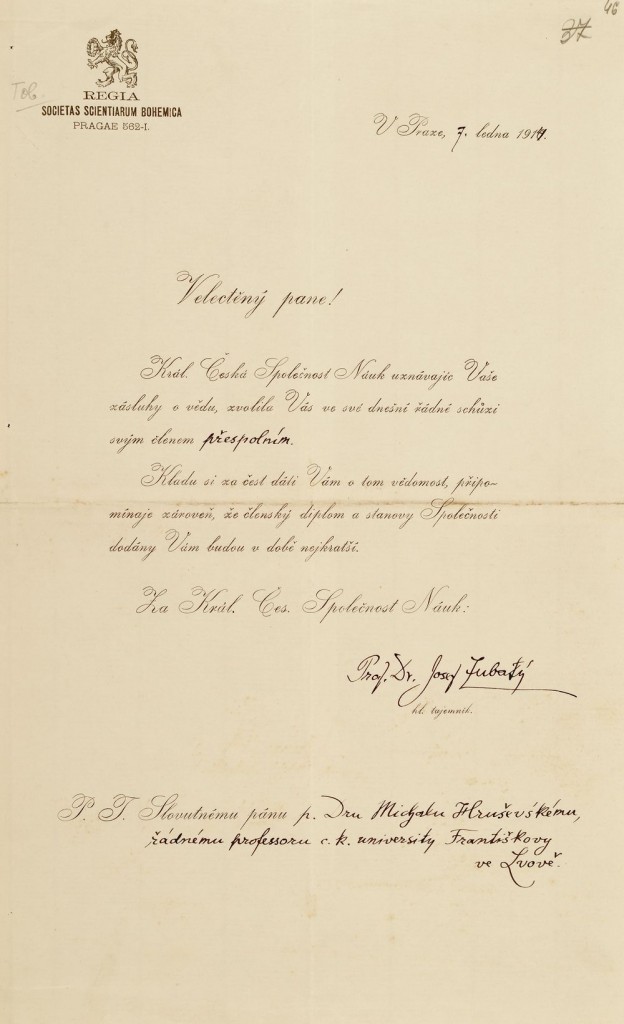 46
37
Tob.
REGIA
SOCIETAS SCIENTIARUM BOHEMICA
PRAGAE 562-I.
V Praze, 7. ledna 1914.
Velectěný pane!
Král. Česká Společnost Náuk uznávajíc Vaše
zásluhy o vědu, zvolila Vás ve své dnešní řádné schůzi
svým členem přespolním.
Kladu si za čest dáti Vám o tom vědomost, připo-
mínaje zároveň, že členský diplom a stanovy Společnosti
dodány Vám budou v době nejkratší.
Za Král. Čes. Společnost Náuk:
Prof. Dr. Josef Zubatý
hl. tajemník.
P. T. Slovutnému pánu p. Dru Michalu Hruševskému,
řádnému professoru c. k. university Františkovy
ve Lvově.